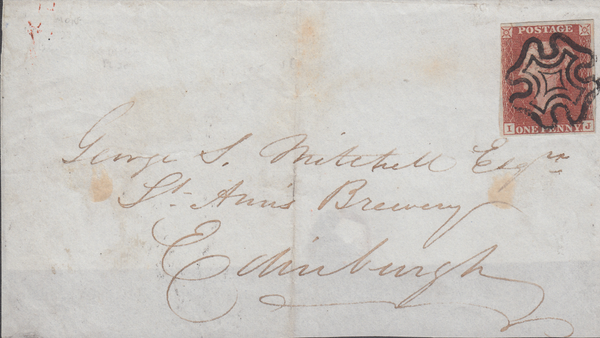 POSTAGE
I ONE PENNY J
George S. Mitchell Esqre
St. Ann's Brewery
Edinburgh